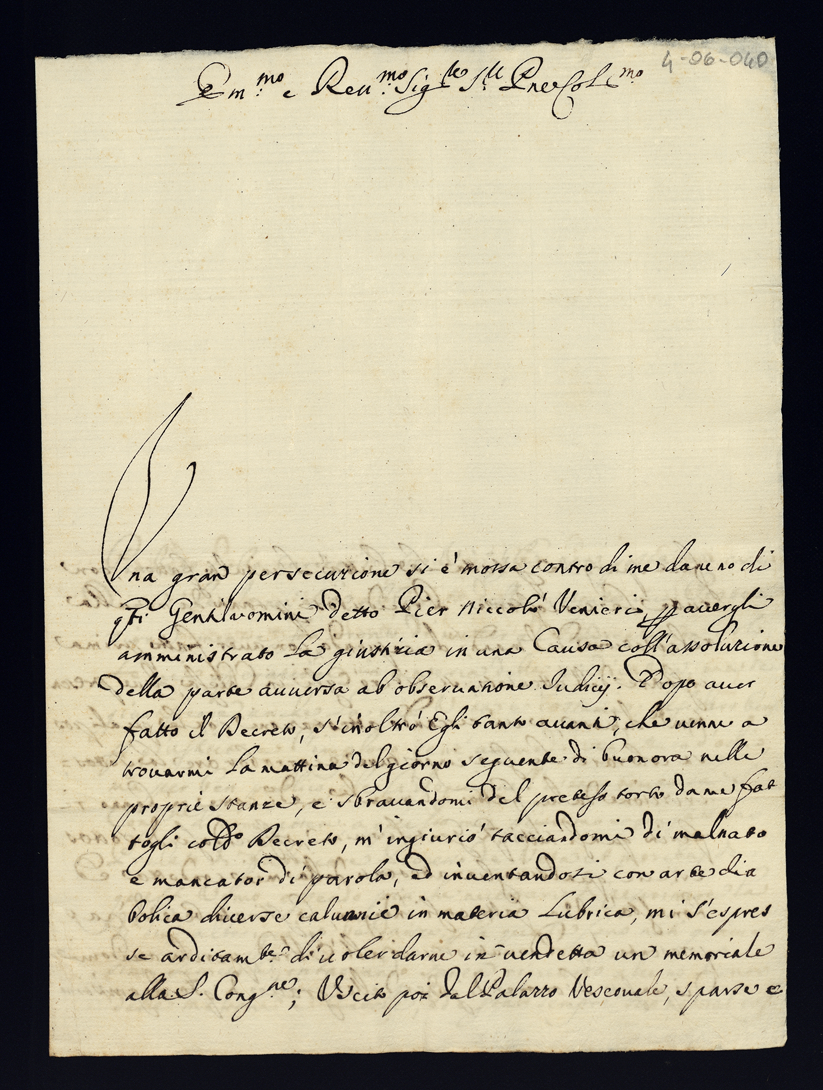 4-06-040
Em.mo e Reu.mo Sig.re S.re Pne Col.mo
Una gran persecuzione si è mossa contro di me da uno di
q̃ti Gentiluomini detto Pier Niccolò Venieri, p auergli
amministrato la giustizia in una Causa coll'assoluzione
della parte auuersa ab obseruatione Iudicij. Dopo auer
fatto il Decreto, s'inoltrò Egli tanto auanti, che uenne a
trouarmi la mattina del giorno seguente di buonora nelle
proprie stanze, e sbrauandomi del preteso torto da me fat
togli col d.o Decreto, m'ingiuriò tacciandomi di malnato
e mancator di parola, ed inuentandosi con arte dia
bolica diuerse calunnie in materia Lubrica, mi s'espres
se arditam.te di uoler darne in uendetta un memoriale
alla S. Cong.ne; Uscito poi dal Palazzo Vescouale, sparse e